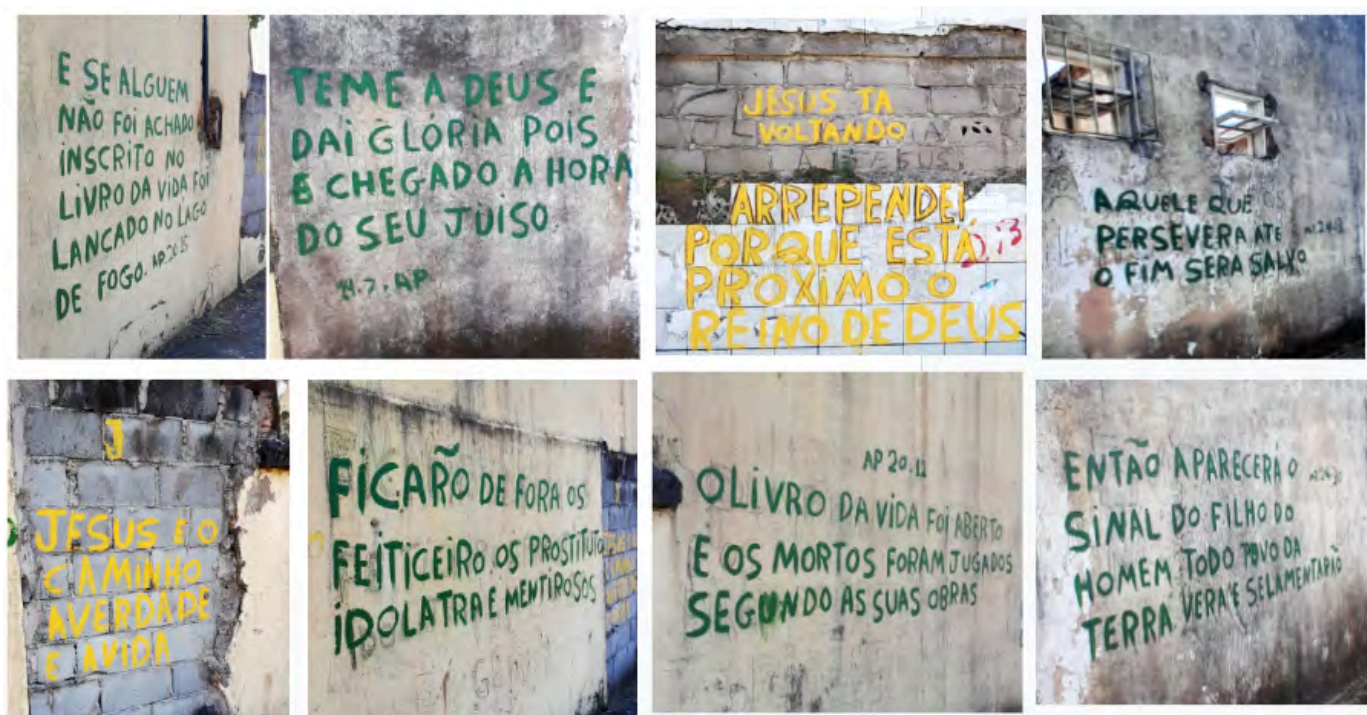 E SE ALGUEM
NÃO FOI ACHADO
INSCRITO NO
LIVRO DA VIDA FOI
LANCADO NO LAGO
DE FOGO. AP. 20.15
TEME A DEUS E
DAI GLORIA POIS
E CHEGADO A HORA
DO SEU JUISO
14.7.AP
JESUS TA
VOLTANDO
ARREPENDEI
PORQUE ESTA
PROXIMO O
REINO DE DEUS
AQUELE QUE
PERSEVERA ATE
O FIM SERA SALVO
J
JESUS E O
CAMINHO
AVERDADE
E AVIDA
FICARÕ DE FORA OS
FEITICEIRO OS PROSTITUTO
IDOLATRA E MENTIROSOS
AP 20.12
OLIVRO DA VIDA FOI ABERTO
E OS MORTOS FORAM JUGADOS
SEGUNDO AS SUAS OBRAS
ENTÃO APARECERÁ O
SINAL DO FILHO DO
HOMEM TODO POVO DA
TERRA VERA E SELAMENTARÃO